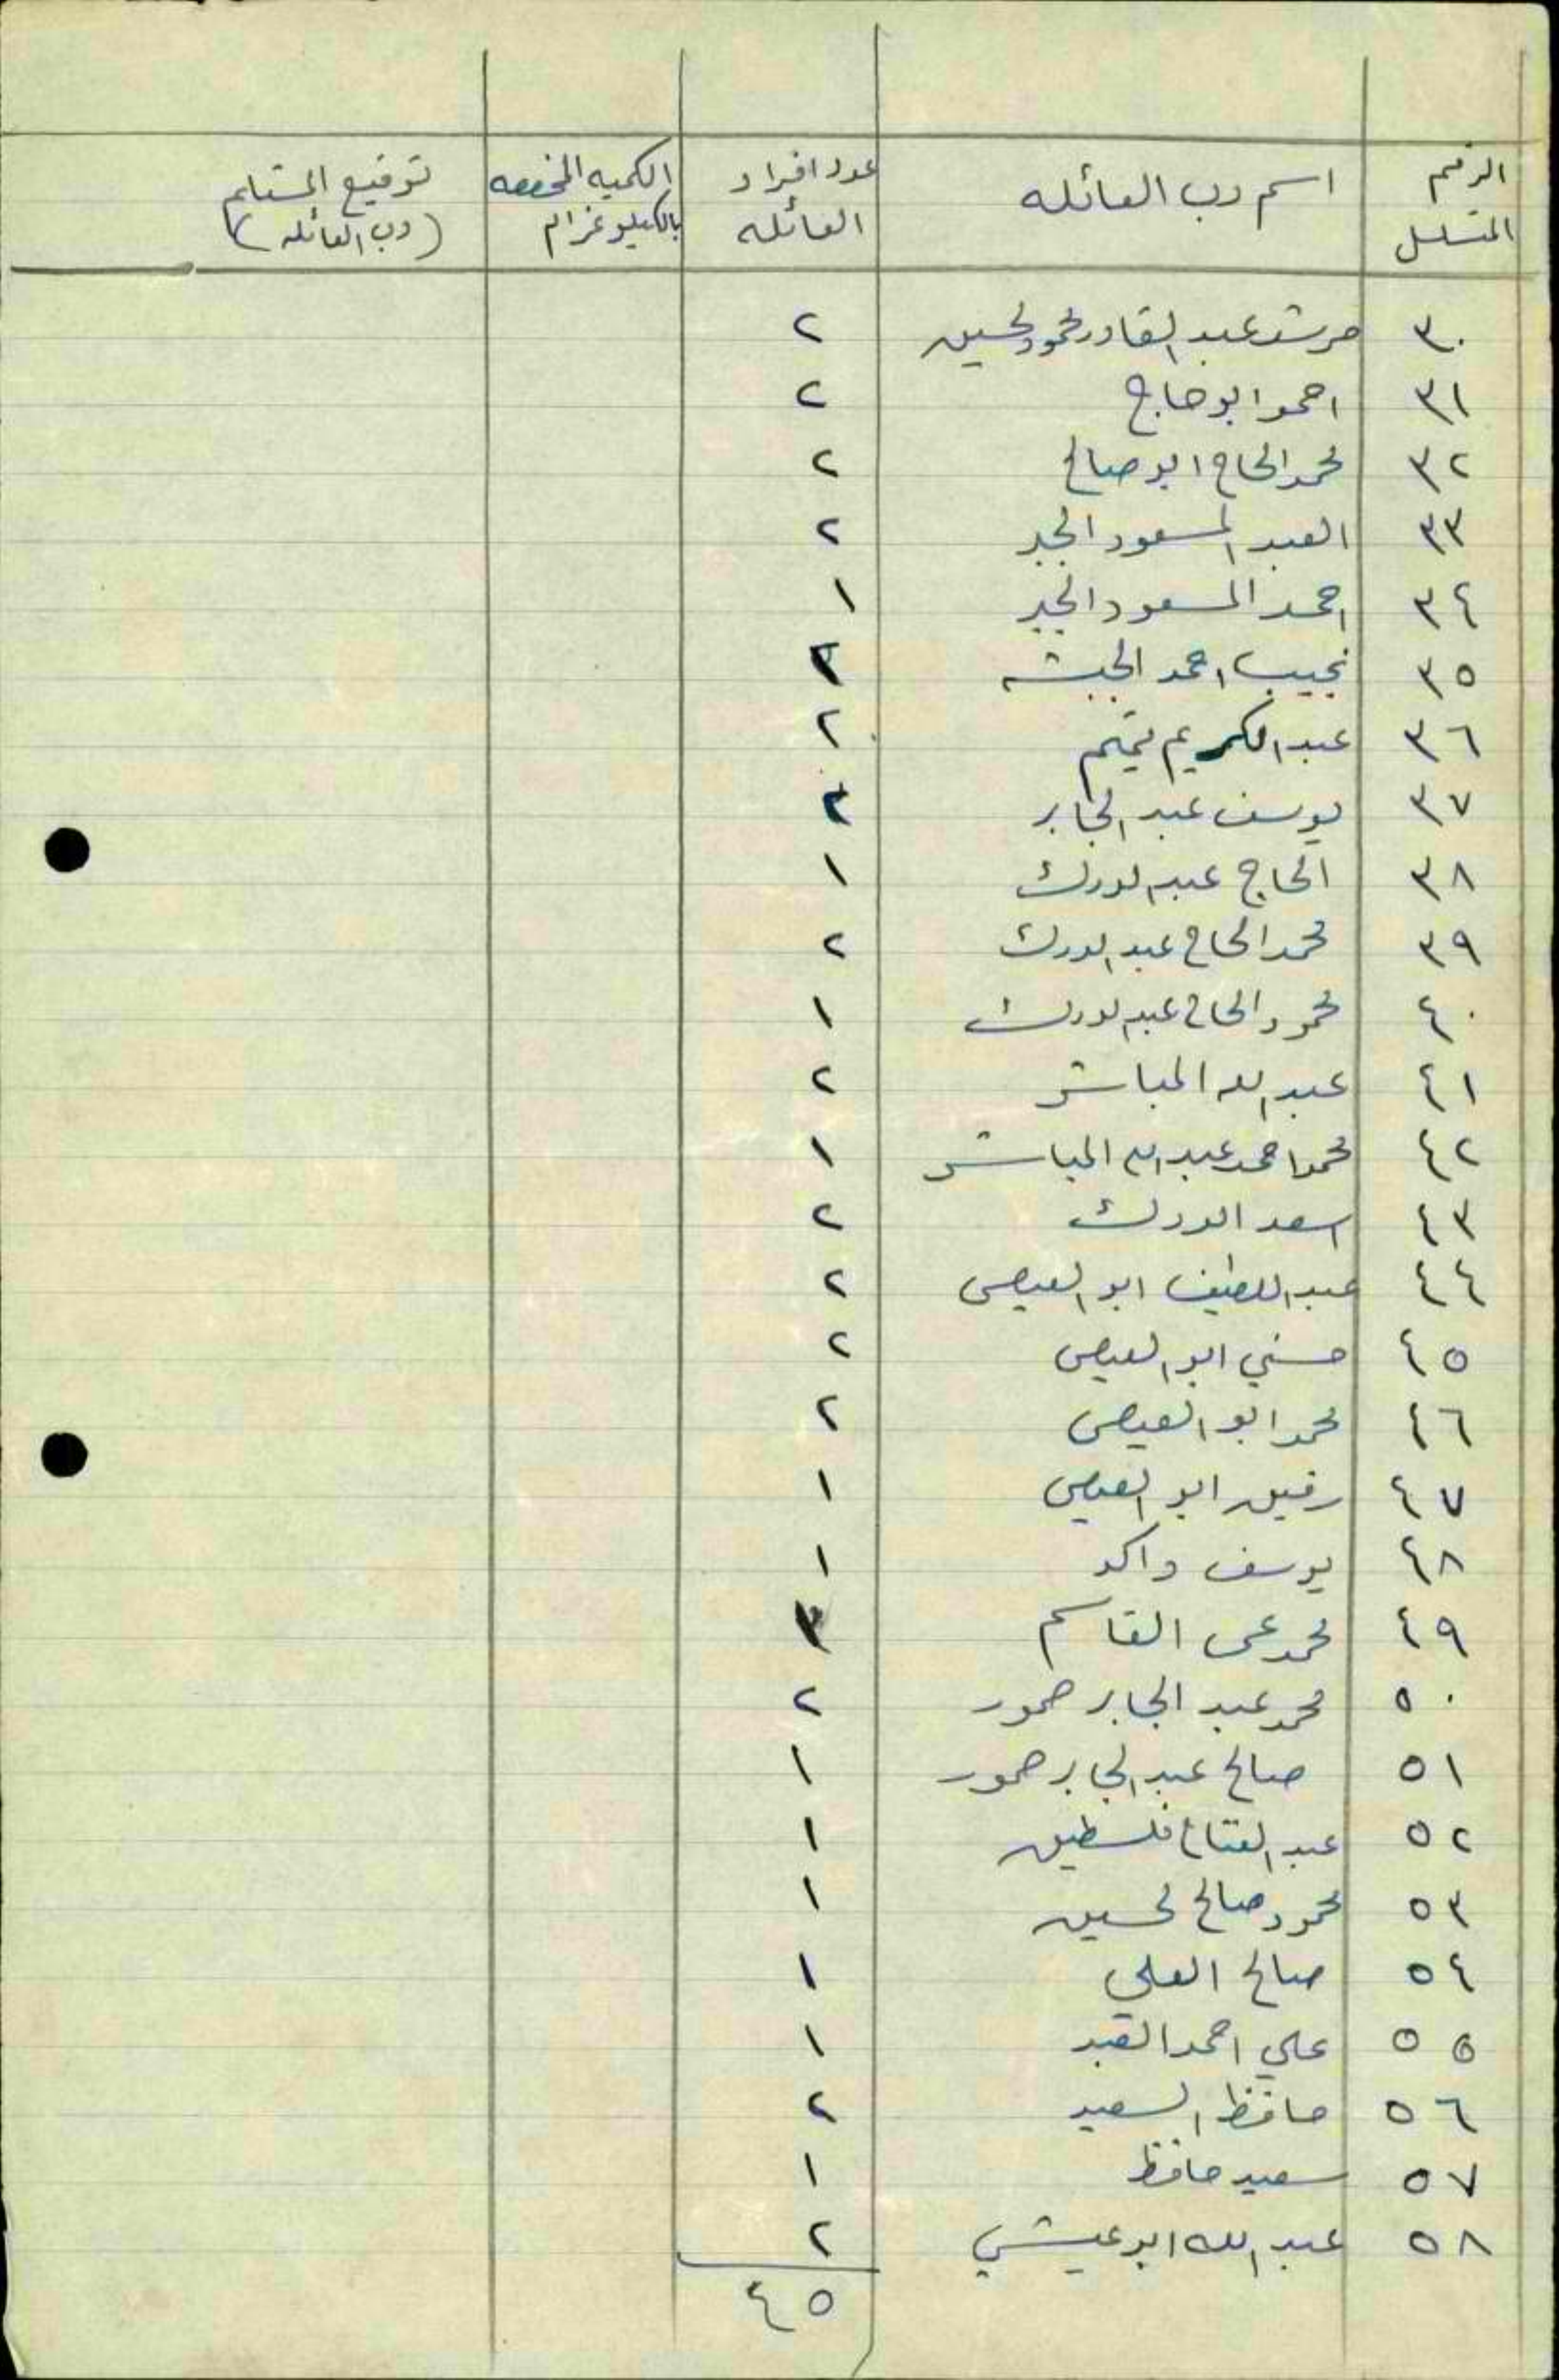 الرقم المتسلسل اسم رب العائله عدد افراد العائله الكميه المخصصه بالكيلوغرام توقيع المستلم (رب العائله)
٣٠ مرشد عبد القادر محمود لحسين ٢
٣١ احمد ابو حاج ٢
٣٢ محمد الحاج ابو صالح ٢
٣٣ العبد المسعود الجبر ٢
٣٤ احمد المسعود الجبر ١
٣٥ نجيب احمد الحبشه ٢
٣٦ عبد الكريم تميم ٢
٣٧ يوسف عبد الجابر ٢
٣٨ الحاج عبد الوردك ١
٣٩ محمد الحاج عبد الوردك ٢
٤٠ محمود الحاج عبد الوردك ١
٤١ عبد الله المباشر ٢
٤٢ محمد احمد عبد الله المباشر ١
٤٣ اسعد الوردك ٢
٤٤ عبد اللطيف ابو العيص ٢
٤٥ حسني ابو العيص ٢
٤٦ محمد ابو العيص ٢
٤٧ رفيق ابو العيص ١
٤٨ يوسف واكد ١
٤٩ محمد القاسم
٥٠ محمد عبد الجابر حمور ٢
٥١ صالح عبد الجابر حمور ١
٥٢ عبد الفتاح فلسطين ١
٥٣ محمود صالح لحسين ١
٥٤ صالح العلي ١
٥٥ علي احمد العبد ١
٥٦ حافظ السعيد ٢
٥٧ سعيد حافظ ١
٥٨ عبد الله ابو عيشي ٢
٤٥